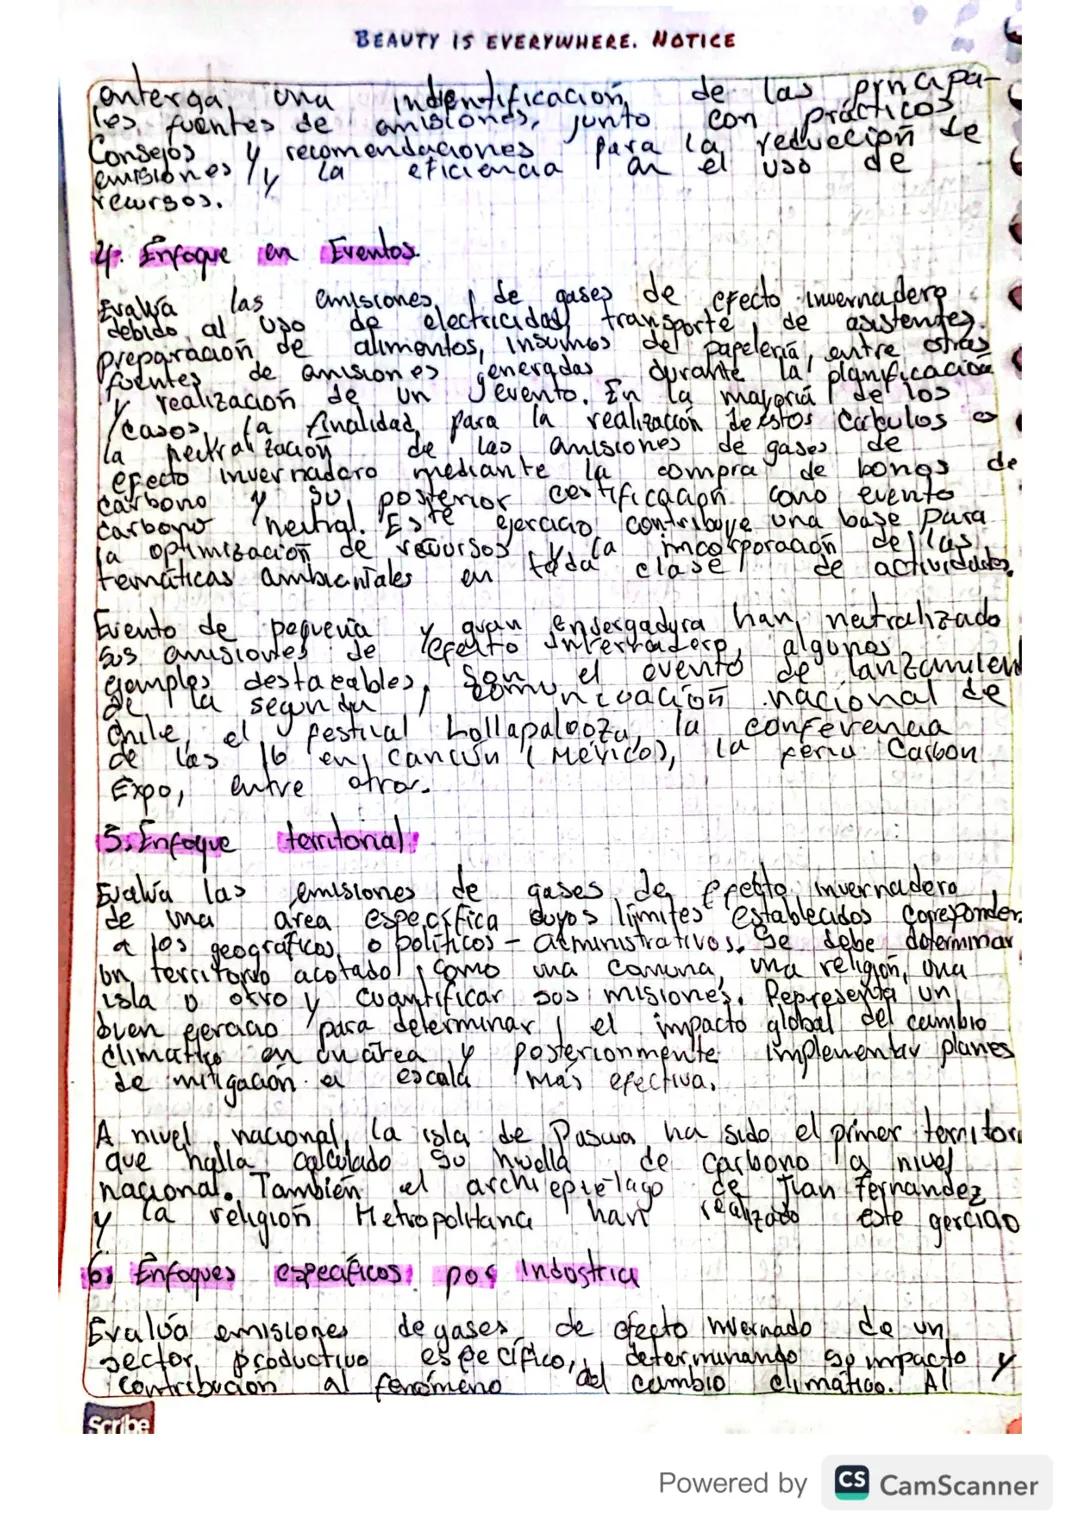 BEAUTY IS EVERYWHERE. NOTICE
enterga, una indentificación, de las prncipa-
les, fuentes de emisiones, junto con prácticos
Consejos y recomendaciones para la reducción de
emisiones y la eficiencia en el uso de
recursos.
4. Enfoque en Eventos.
Evalúa las emisiones, de gases de efecto invernadero
debido al uso de electricidad, transporte, de asistentes,
preparación de alimentos, insumos del papeleria, entre otras
fuentes de emisiones generadas durante la planificación
y realización de un evento. En la mayoria de los
casos, la finalidad para la realización de estos Calculos es
la neutralización de las emisiones de gases de
efecto invernadero mediante la compra de bonos de
carbono y su posterior certificación como evento
carbono neutral. Este ejercicio contribuye una base para
la optimización de recursos y la incorporación de las
temáticas ambientales en toda clase de actividades.
Evento de pequeña y gran envergadura han neutralizado
sus emisiones de efecto invernadero, algunos
ejemplos destacables, son el evento de lanzamien
de la segunda comunicación nacional de
Chile, el festival Lollapalooza, la conferencia
de las 16 en Cancún (México), la feria Carbon
Expo, entre otros.
5. Enfoque territorial:
Evalúa las emisiones de gases de efecto invernadero
de una área específica cuyos límites establecidos corresponder
a los geográficos o políticos - administrativos. Se debe determinar
un territorio acotado, como una comuna, una religión, una
isla u otro y cuantificar sus misiones. Representa un
buen ejercicio para determinar el impacto global del cambio
climático en un área y posterionmente implementar planes
de mitigación a escala más efectiva.
A nivel nacional, la isla de Pascua ha sido el primer territori
que halla calculado su huella de carbono a nivel
nacional. También el archiepielago de Jian Fernandez
y la religión Metropolitana han realizado este gercicio
6. Enfoques específicos: por Industria
Evalúa emisiones de gases de efecto invernado de un
sector, productivo específico, determinando su impacto y
contribución al fenómeno del cambio climático. Al
Scribe
Powered by CS CamScanner